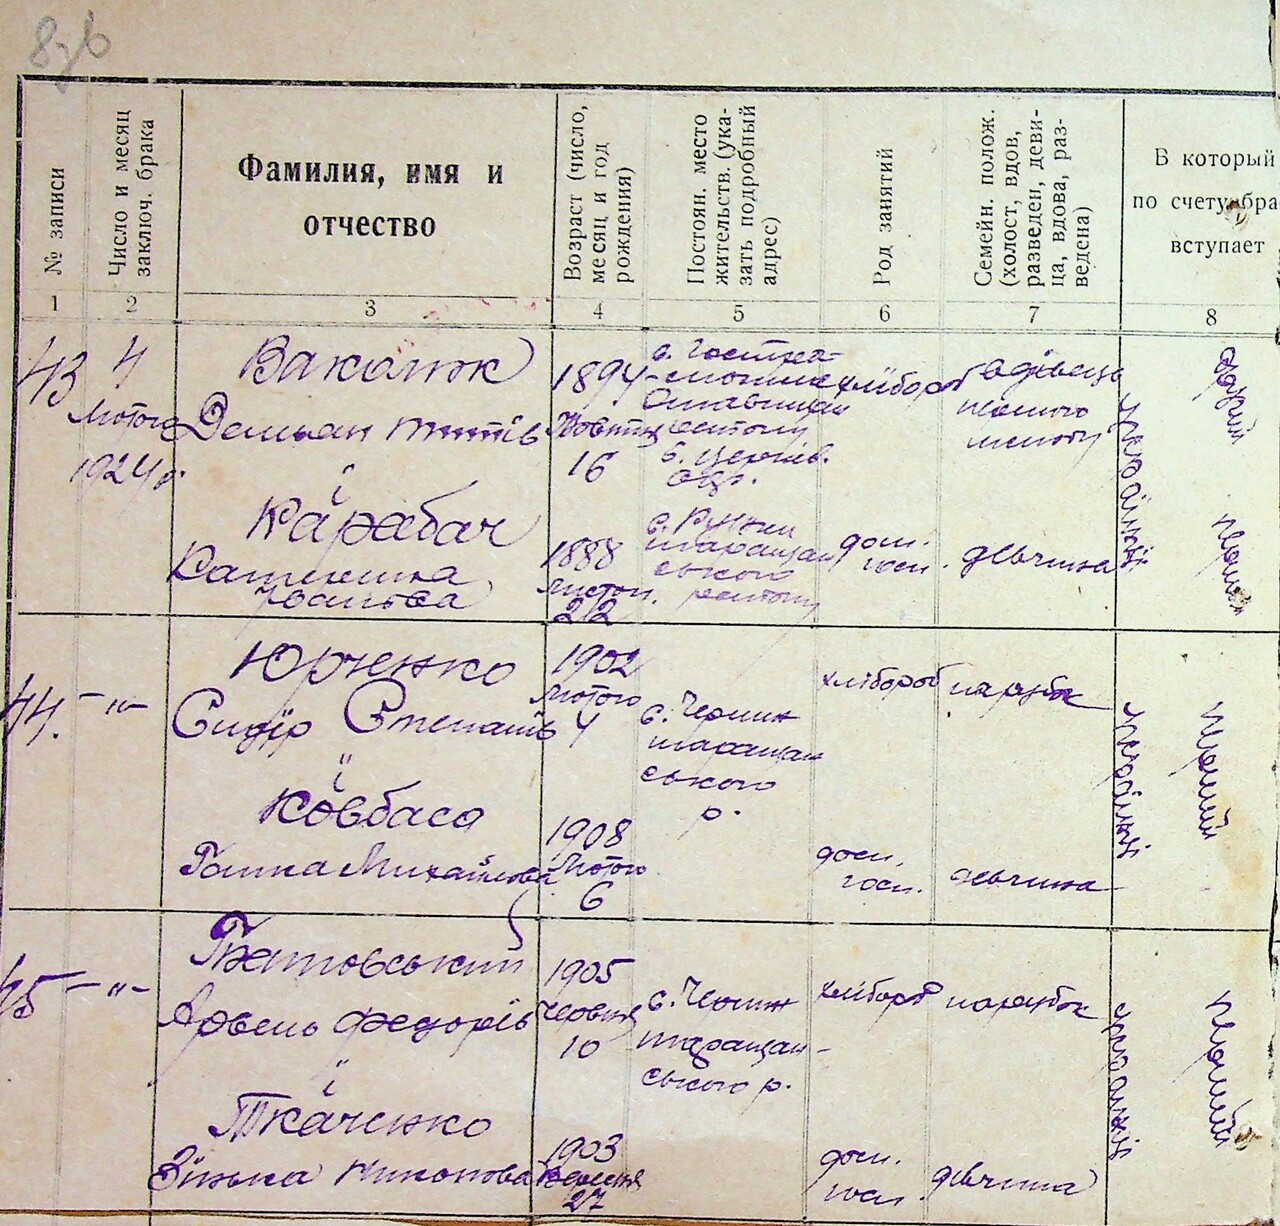 876
№ записи
Число и месяц
заключ. брака
Фамилия, имя и
отчество
Возраст (число,
месяц и год
рождения)
Постоян. место
жительств. (ука-
зать подробный
адрес)
Род занятий
Семейн. полож.
(холост, вдов,
разведен, деви-
ца, вдова, раз-
ведена)
В который
по счету бра
вступает
1 2 3 4 5 6 7 8
43
4
Лютого
1924 р.
Вакалюк
Демьян
і
Карабач
Катерина
1894
Жовтня
16
1888
Листоп.
22
хлібороб
дом.
госп.
вдівець
першого
девчина
українці
другий
перший
44.
— „ —
Юрченко
Сидір Степанів
й
Ковбаса
Ганна Михайлова
1902
Лютого
4
1908
Лютого
6
с. Чернин
таращан
ського
р.
хлібороб
дом.
госп.
парубок
девчина
українці
перший
45
— „ —
Арсень Федорів
і
Ткаченко
Зінька
1905
Червня
10
1903
Вересня
27
с. Чернин
таращан-
ського р.
хлібороб
дом.
госп.
парубок
девчина
українці
перший